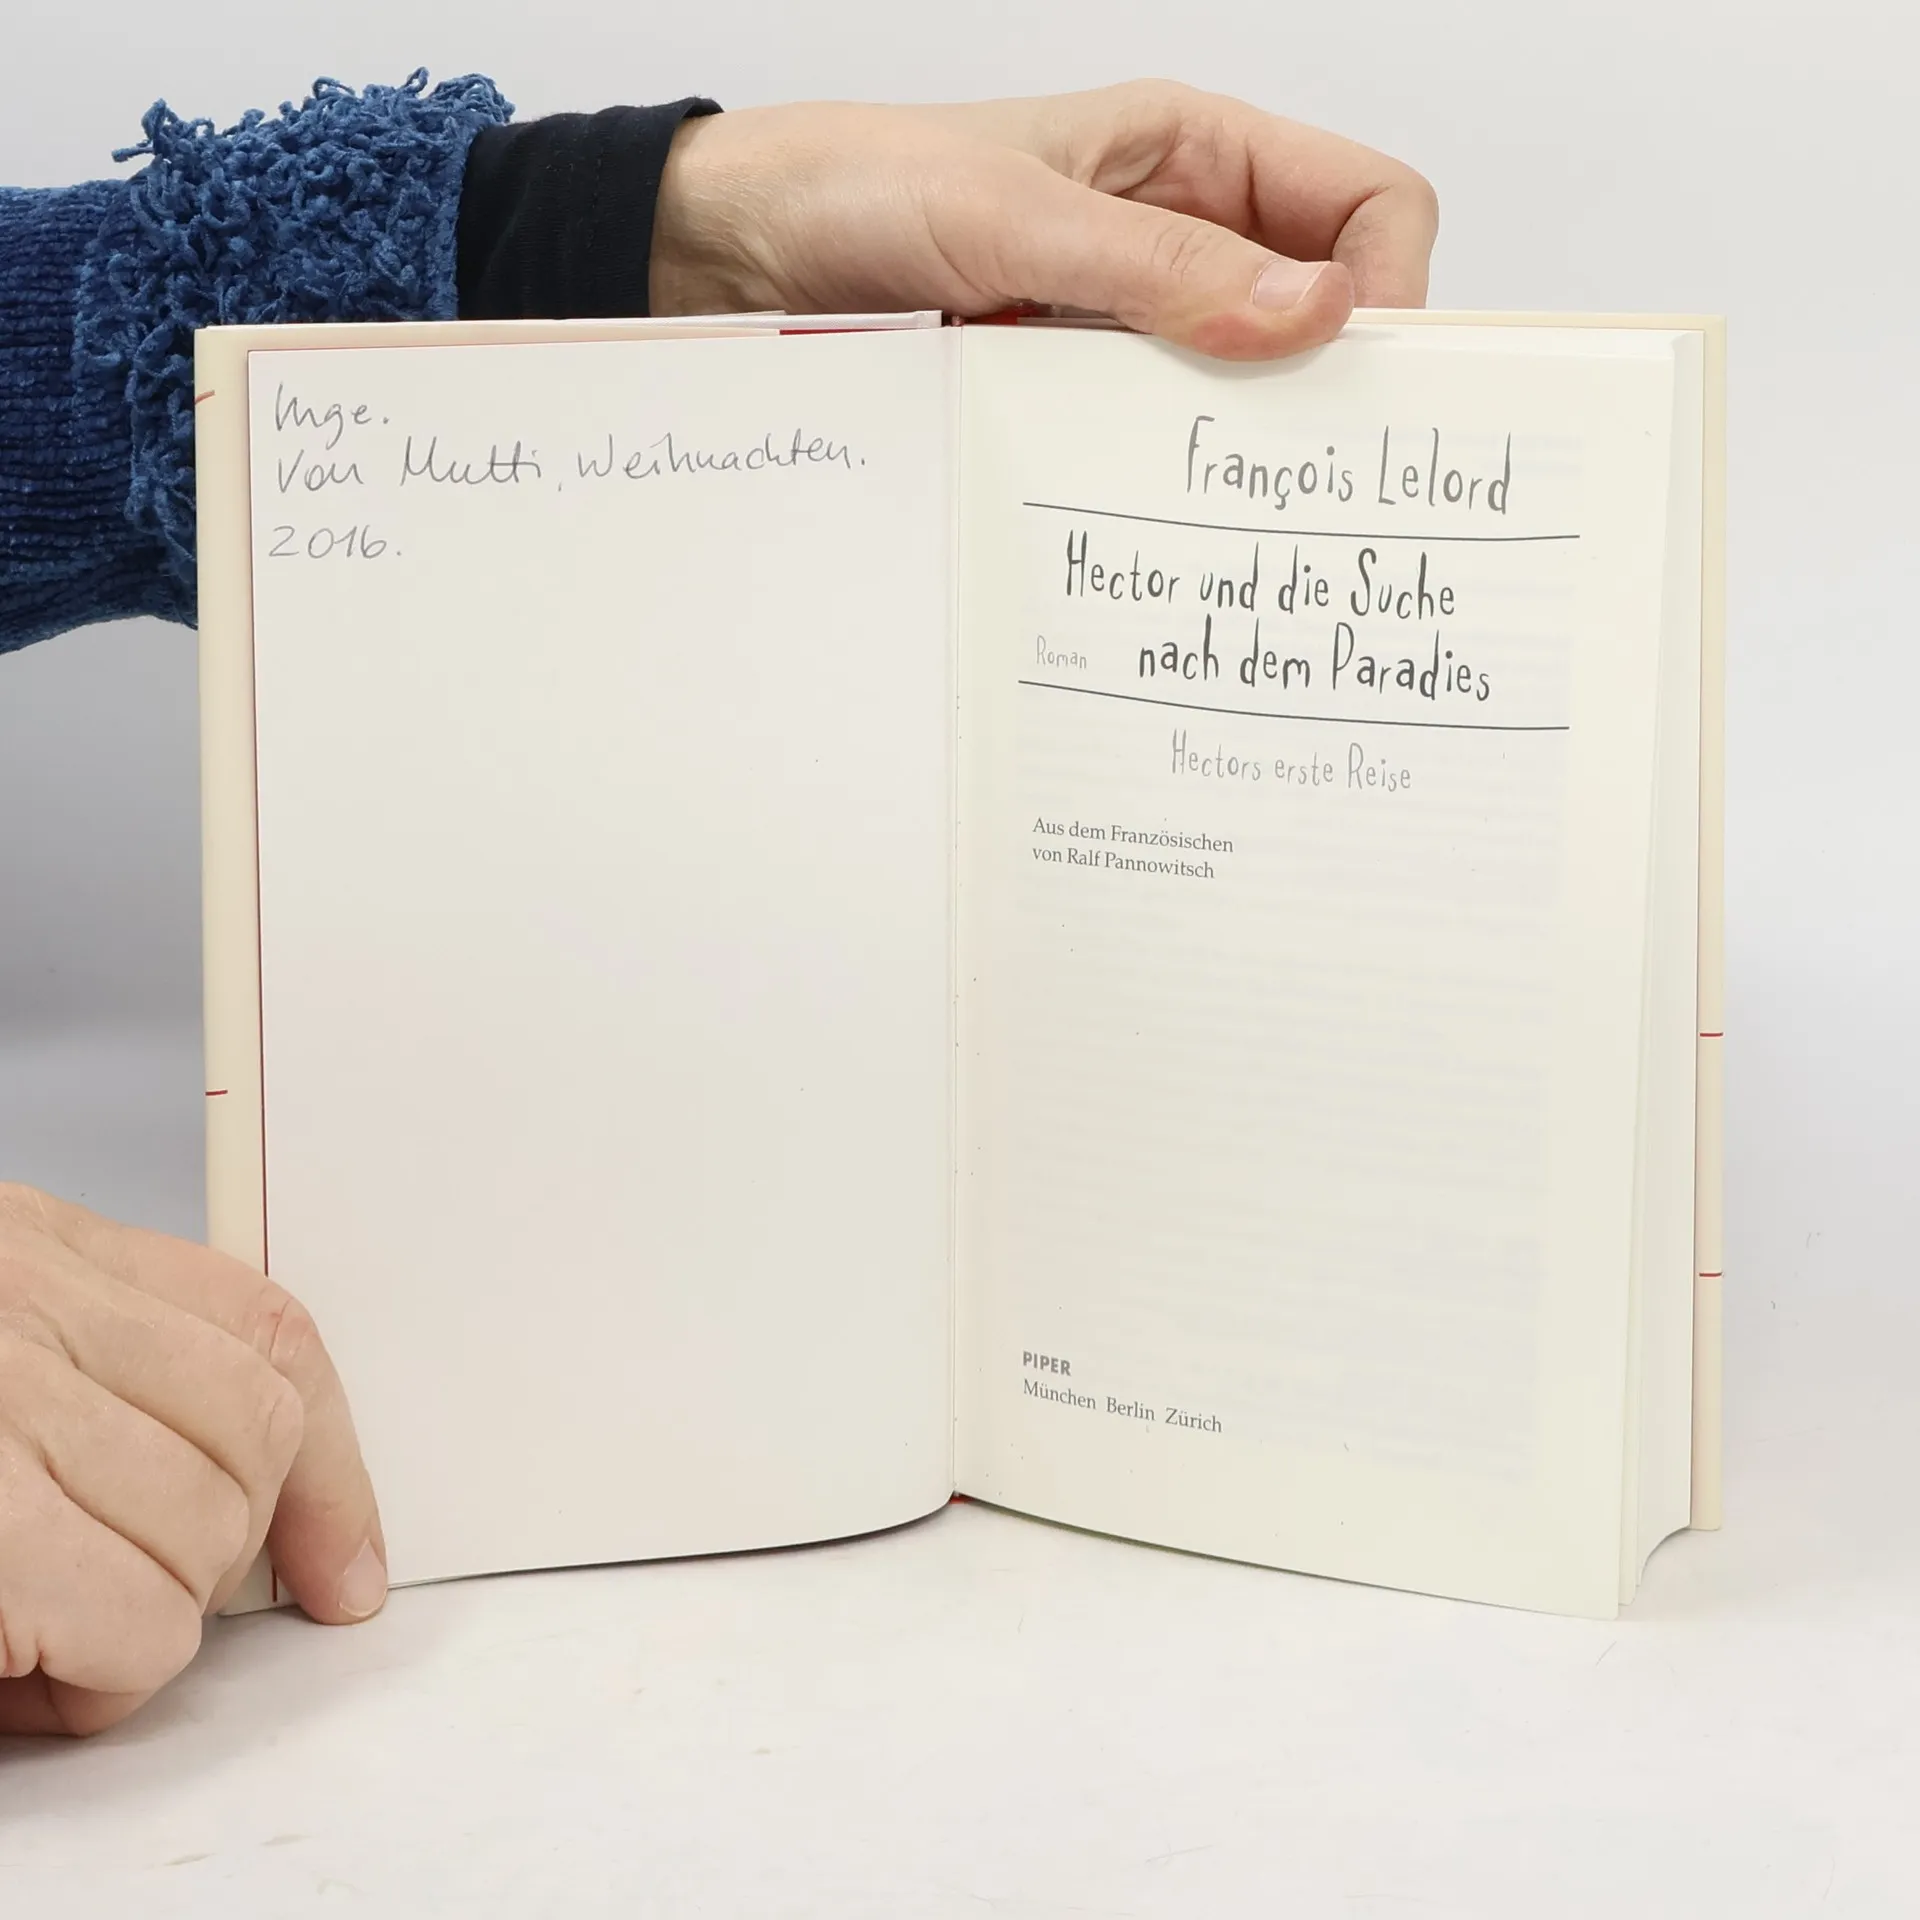 Inge.
Von Mutti, Weihnachten.
2016.
François Lelord
Hector und die Suche
nach dem Paradies
Roman
Hectors erste Reise
Aus dem Französischen
von Ralf Pannowitsch
PIPER
München Berlin Zürich